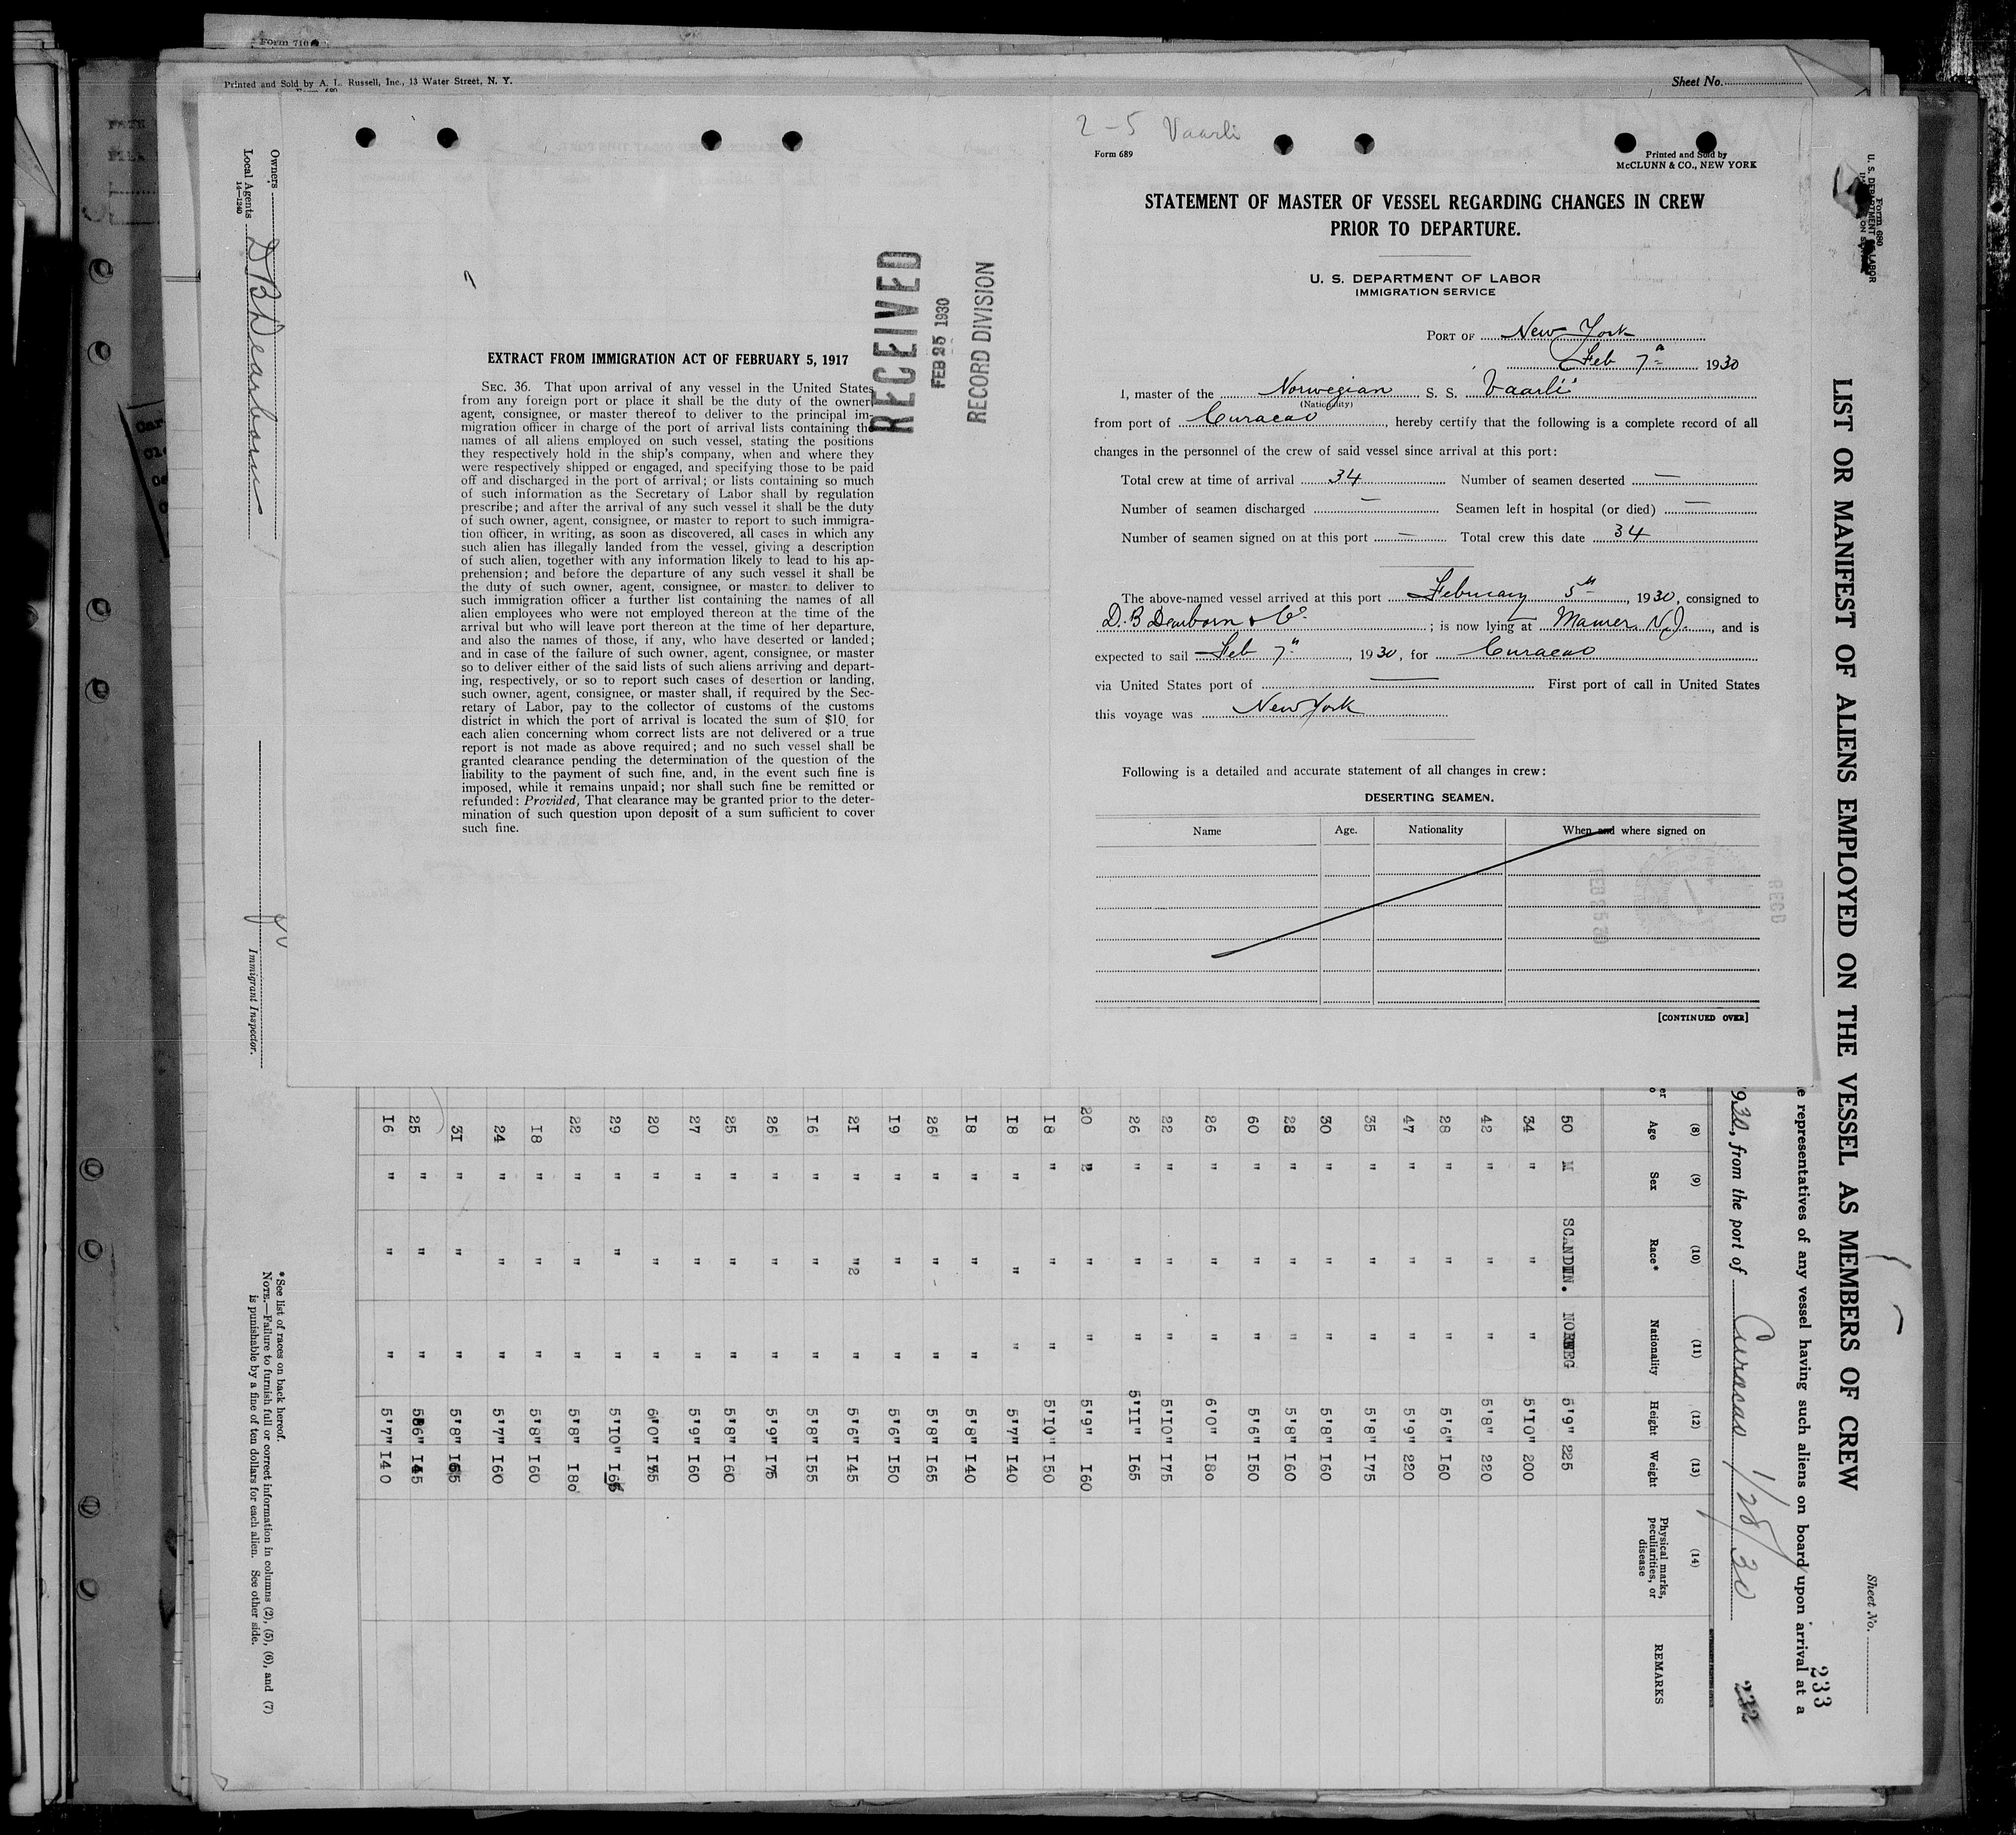 Form 710
Printed and Sold by A. L. Russell, Inc., 13 Water Street, N. Y.
Sheet No.
Owners
Local Agents D B Dearborn
14—1240
Immigrant Inspector.
RECEIVED
FEB 25 1930
RECORD DIVISION
EXTRACT FROM IMMIGRATION ACT OF FEBRUARY 5, 1917
SEC. 36. That upon arrival of any vessel in the United States
from any foreign port or place it shall be the duty of the owner,
agent, consignee, or master thereof to deliver to the principal im-
migration officer in charge of the port of arrival lists containing the
names of all aliens employed on such vessel, stating the positions
they respectively hold in the ship's company, when and where they
were respectively shipped or engaged, and specifying those to be paid
off and discharged in the port of arrival; or lists containing so much
of such information as the Secretary of Labor shall by regulation
prescribe; and after the arrival of any such vessel it shall be the duty
of such owner, agent, consignee, or master to report to such immigra-
tion officer, in writing, as soon as discovered, all cases in which any
such alien has illegally landed from the vessel, giving a description
of such alien, together with any information likely to lead to his ap-
prehension; and before the departure of any such vessel it shall be
the duty of such owner, agent, consignee, or master to deliver to
such immigration officer a further list containing the names of all
alien employees who were not employed thereon at the time of the
arrival but who will leave port thereon at the time of her departure,
and also the names of those, if any, who have deserted or landed;
and in case of the failure of such owner, agent, consignee, or master
so to deliver either of the said lists of such aliens arriving and depart-
ing, respectively, or so to report such cases of desertion or landing,
such owner, agent, consignee, or master shall, if required by the Sec-
retary of Labor, pay to the collector of customs of the customs
district in which the port of arrival is located the sum of $10 for
each alien concerning whom correct lists are not delivered or a true
report is not made as above required; and no such vessel shall be
granted clearance pending the determination of the question of the
liability to the payment of such fine, and, in the event such fine is
imposed, while it remains unpaid; nor shall such fine be remitted or
refunded: Provided, That clearance may be granted prior to the deter-
mination of such question upon deposit of a sum sufficient to cover
such fine.
2-5 Vaarli
Form 689
Printed and Sold by
McCLUNN & CO., NEW YORK
STATEMENT OF MASTER OF VESSEL REGARDING CHANGES IN CREW
PRIOR TO DEPARTURE.
U. S. DEPARTMENT OF LABOR
IMMIGRATION SERVICE
PORT OF New York
Feb 7th 1930
I, master of the Norwegian S. S. Vaarli
(Nationality)
from port of Curacao, hereby certify that the following is a complete record of all
changes in the personnel of the crew of said vessel since arrival at this port:
Total crew at time of arrival 34 Number of seamen deserted —
Number of seamen discharged — Seamen left in hospital (or died) —
Number of seamen signed on at this port — Total crew this date 34
The above-named vessel arrived at this port February 5th, 1930, consigned to
D. B Dearborn & Co.; is now lying at Maurer. N.J., and is
expected to sail Feb 7th, 1930, for Curacao
via United States port of — First port of call in United States
this voyage was New York
Following is a detailed and accurate statement of all changes in crew:
DESERTING SEAMEN.
Name Age. Nationality When and where signed on
[CONTINUED OVER]
Form 680
U. S. DEPARTMENT OF LABOR
Sheet No.
LIST OR MANIFEST OF ALIENS EMPLOYED ON THE VESSEL AS MEMBERS OF CREW
233
representatives of any vessel having such aliens on board upon arrival at a
930, from the port of Curacao 1/28/30
232
(8) (9) (10) (11) (12) (13) (14)
Age Sex Race* Nationality Height Weight Physical marks, peculiarities, or disease REMARKS
50 M SCANDIN. NORWEG 5'9" 225
34 " " " 5'10" 200
42 " " " 5'8" 220
28 " " " 5'6" 160
47 " " " 5'9" 220
35 " " " 5'8" 175
30 " " " 5'8" 160
28 " " " 5'8" 160
60 " " " 5'6" 150
26 " " " 6'0" 180
22 " " " 5'10" 175
26 " " " 5'11" 165
20 " " " 5'9" 160
18 " " " 5'10" 150
18 " " " 5'7" 140
18 " " " 5'8" 140
26 " " " 5'8" 165
19 " " " 5'6" 150
21 " " " 5'6" 145
16 " " " 5'8" 155
26 " " " 5'9" 175
25 " " " 5'8" 160
27 " " " 5'9" 160
20 " " " 6'0" 155
29 " " " 5'10" 165
22 " " " 5'8" 180
18 " " " 5'8" 160
24 " " " 5'7" 160
31 " " " 5'8" 165
25 " " " 5'6" 145
16 " " " 5'7" 140
*See list of races on back hereof.
NOTE.—Failure to furnish full or correct information in columns (2), (5), (6), and (7)
is punishable by a fine of ten dollars for each alien. See other side.